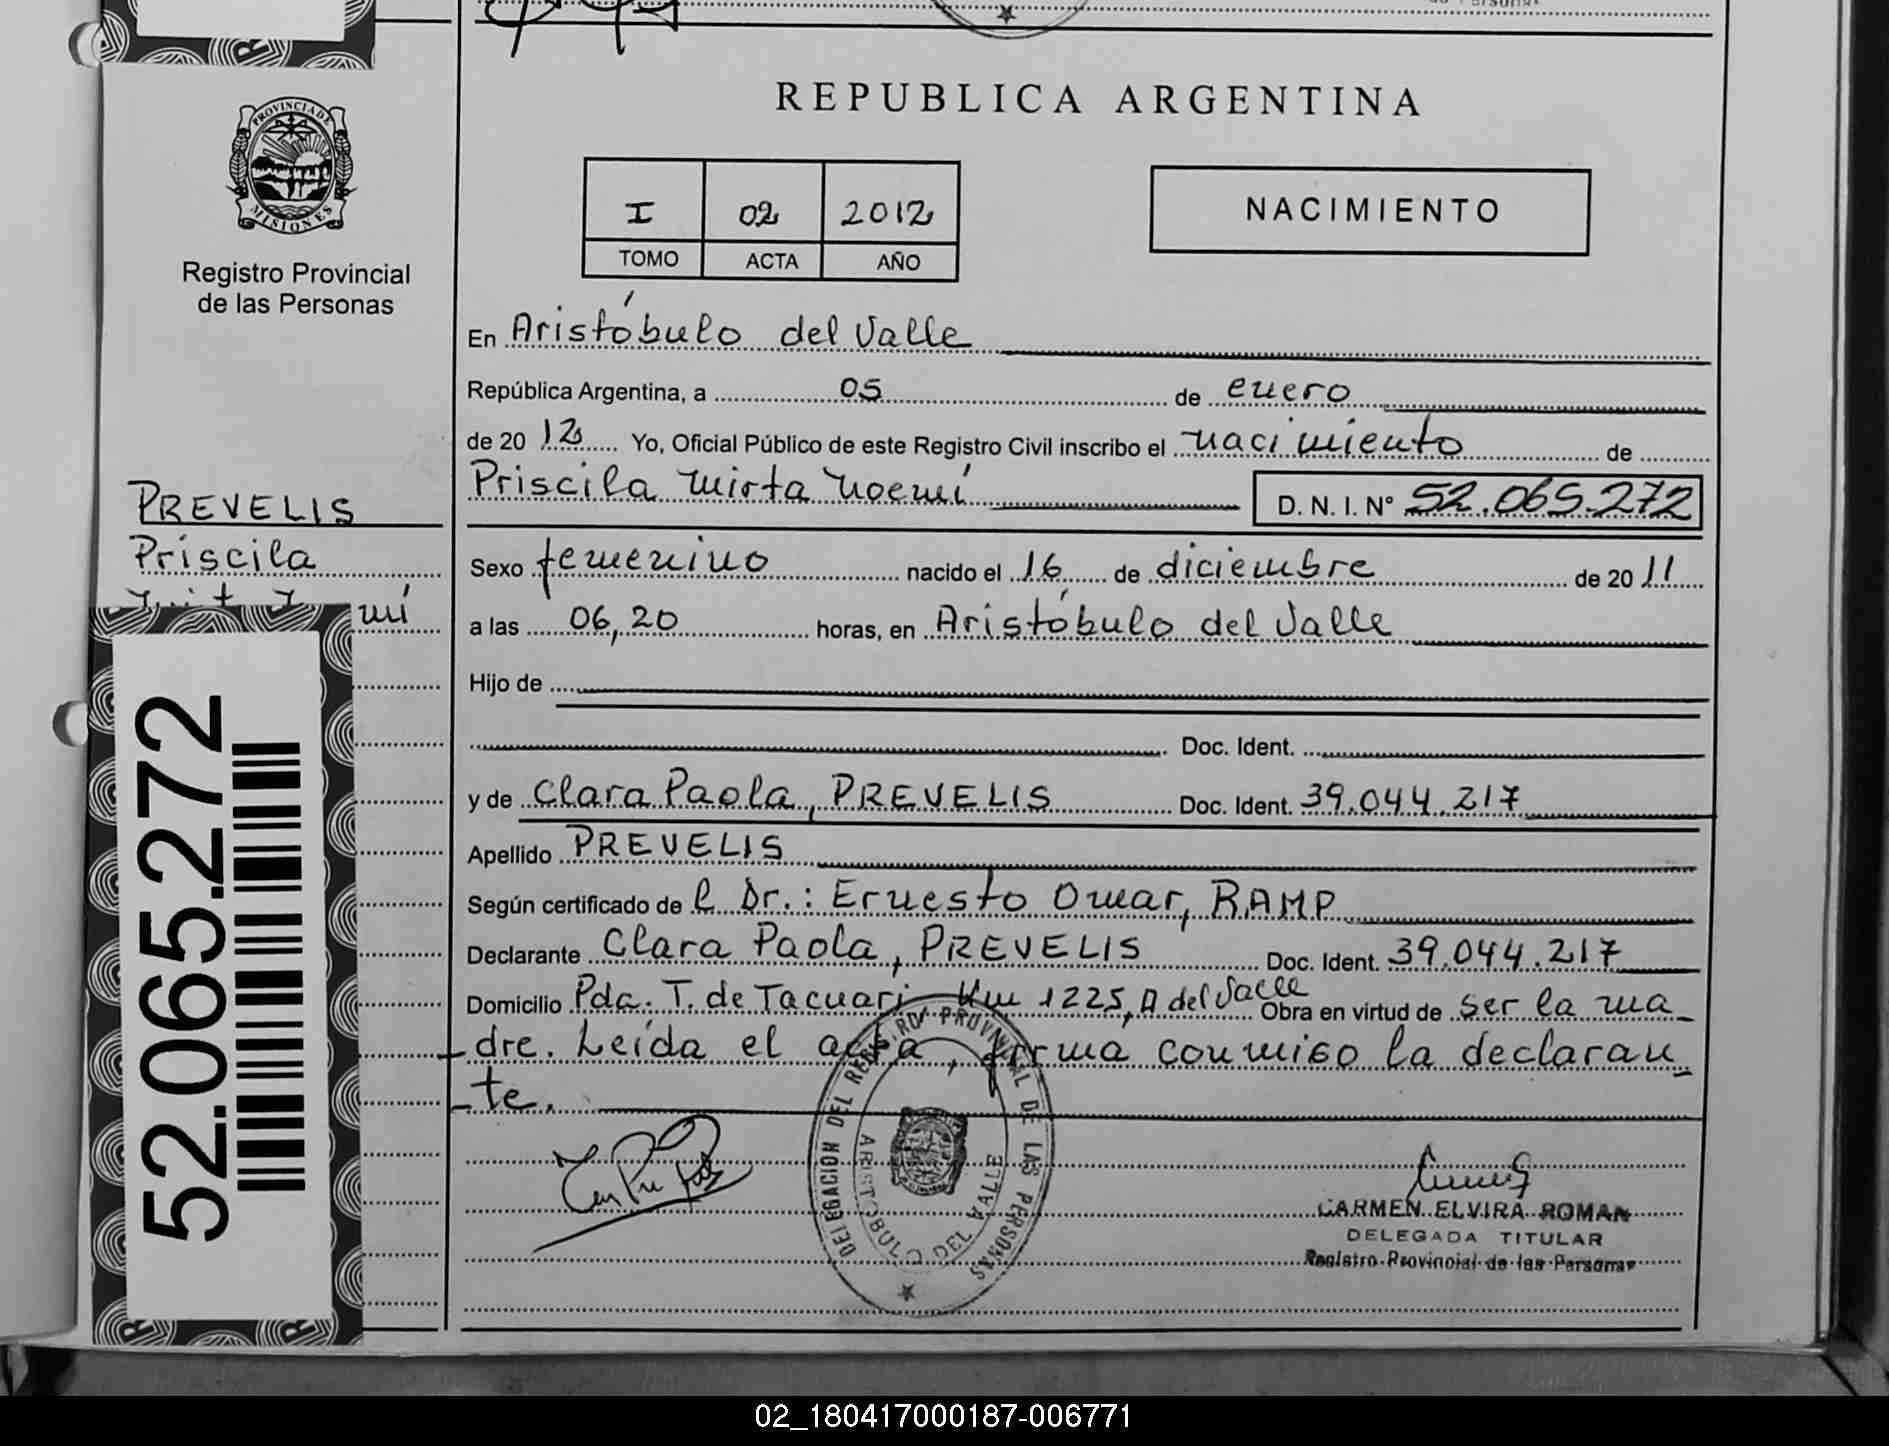 REPUBLICA ARGENTINA
PROVINCIA DE MISIONES
Registro Provincial
de las Personas
I 02 2012
TOMO ACTA AÑO
NACIMIENTO
En Aristóbulo del Valle
República Argentina, a 05 de enero
de 20 12 Yo, Oficial Público de este Registro Civil inscribo el nacimiento de
Priscila Mirta Noemí D. N. I. Nº 52.065.272
PREVELIS
Priscila
mí
Sexo femenino nacido el 16 de diciembre de 20 11
a las 06,20 horas, en Aristóbulo del Valle
Hijo de
Doc. Ident.
y de Clara Paola, PREVELIS Doc. Ident. 39.044.217
Apellido PREVELIS
Según certificado de l Dr.: Ernesto Omar, RAMP
Declarante Clara Paola, PREVELIS Doc. Ident. 39.044.217
Domicilio Pda. T. de Tacuari Km 1225, A del Valle Obra en virtud de ser la ma_
_dre. Leída el acta, firma conmigo la declaran_
_te.
52.065.272
DELEGACION DEL REGISTRO PROVINCIAL DE LAS PERSONAS
ARISTOBULO DEL VALLE
CARMEN ELVIRA ROMAN
DELEGADA TITULAR
Registro Provincial de las Personas
02_180417000187-006771